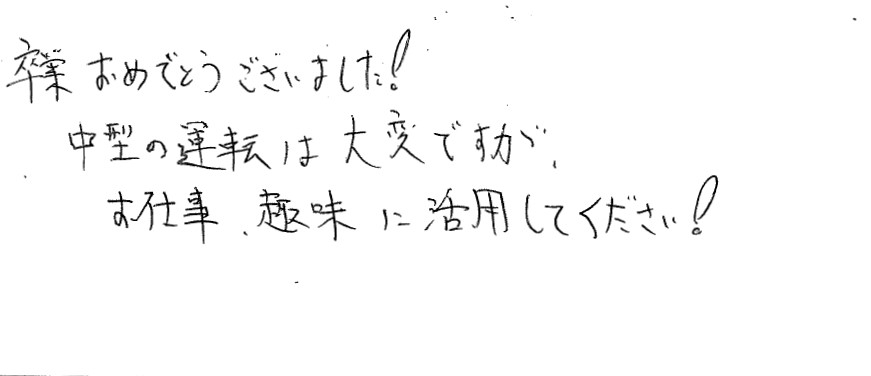 卒業おめでとうございました!
中型の運転は大変ですが、
お仕事、趣味に活用してください!